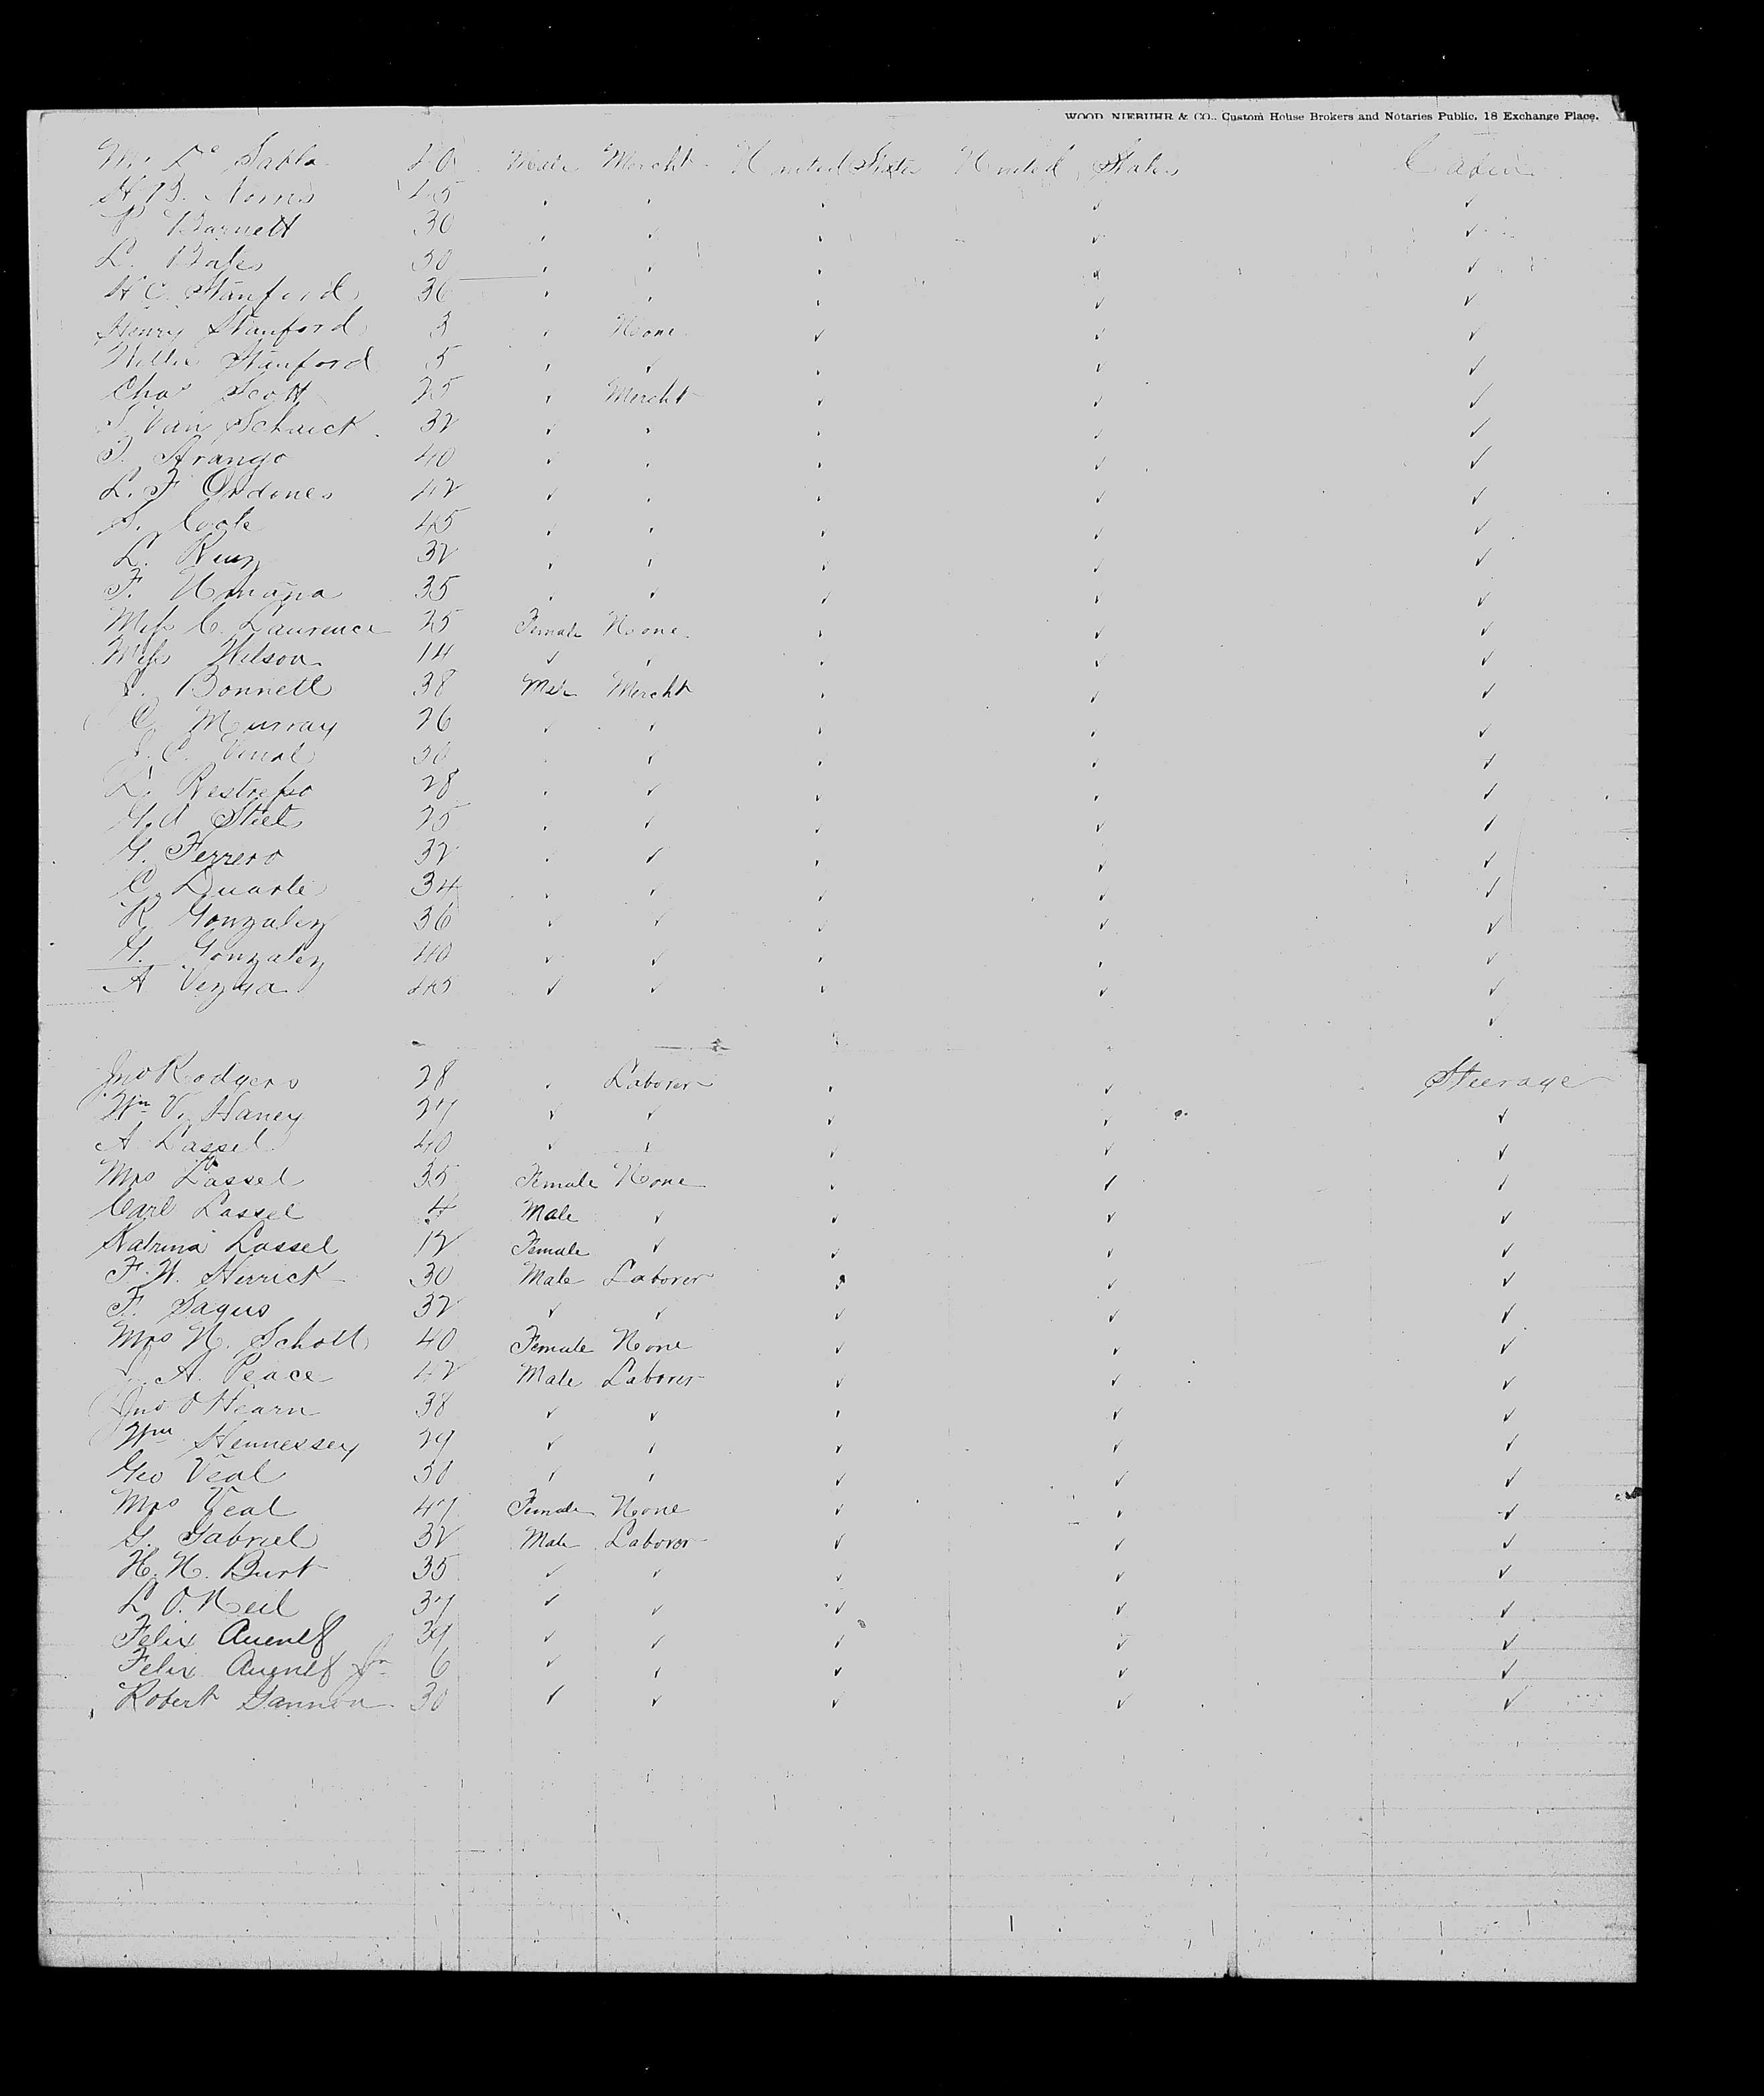 WOOD, NIEBUHR & CO., Custom House Brokers and Notaries Public, 18 Exchange Place.
M. De Male Mercht United States United States Cabin
H B. Norris 45
Barnett 30
L. Bates 30
H C. Stanford 36
Henry Stanford 3 None
Willie Stanford 5
Chas Scott 25 Mercht
S. Van Schaick 32
Arango 40
L. F Ordones 42
S. 45
L. Ruiz 32
F. Umaña 35
Miss C. Laurence 25 Female None
Miss Wilson 14
J. Bonnell 38 Male Mercht
C. Murray 26
J. C. 30
L. Restrepo 28
25
G. Ferrero 32
C. Duarte 34
R Gonzalez 36
G. Gonzalez 40
A 45
Jno Rodgers 28 Laborer Steerage
Wm V. Haney 27
A Lassel 40
Mrs Lassel 35 Female None
Carl Lassel 4 Male
Katrina Lassel 12 Female
F. W. Herrick 30 Male Laborer
F. Sagus 32
Mrs N. Scholl 40 Female None
A. Peace 42 Male Laborer
Jno O'Hearn 38
Wm Hennessey 29
Geo Veal 50
Mrs Veal 47 Female None
G. Gabriel 32 Male Laborer
H. H. Burt 35
L O. Neil 37
Felix 39
Felix Jr 6
Robert Gannon 30